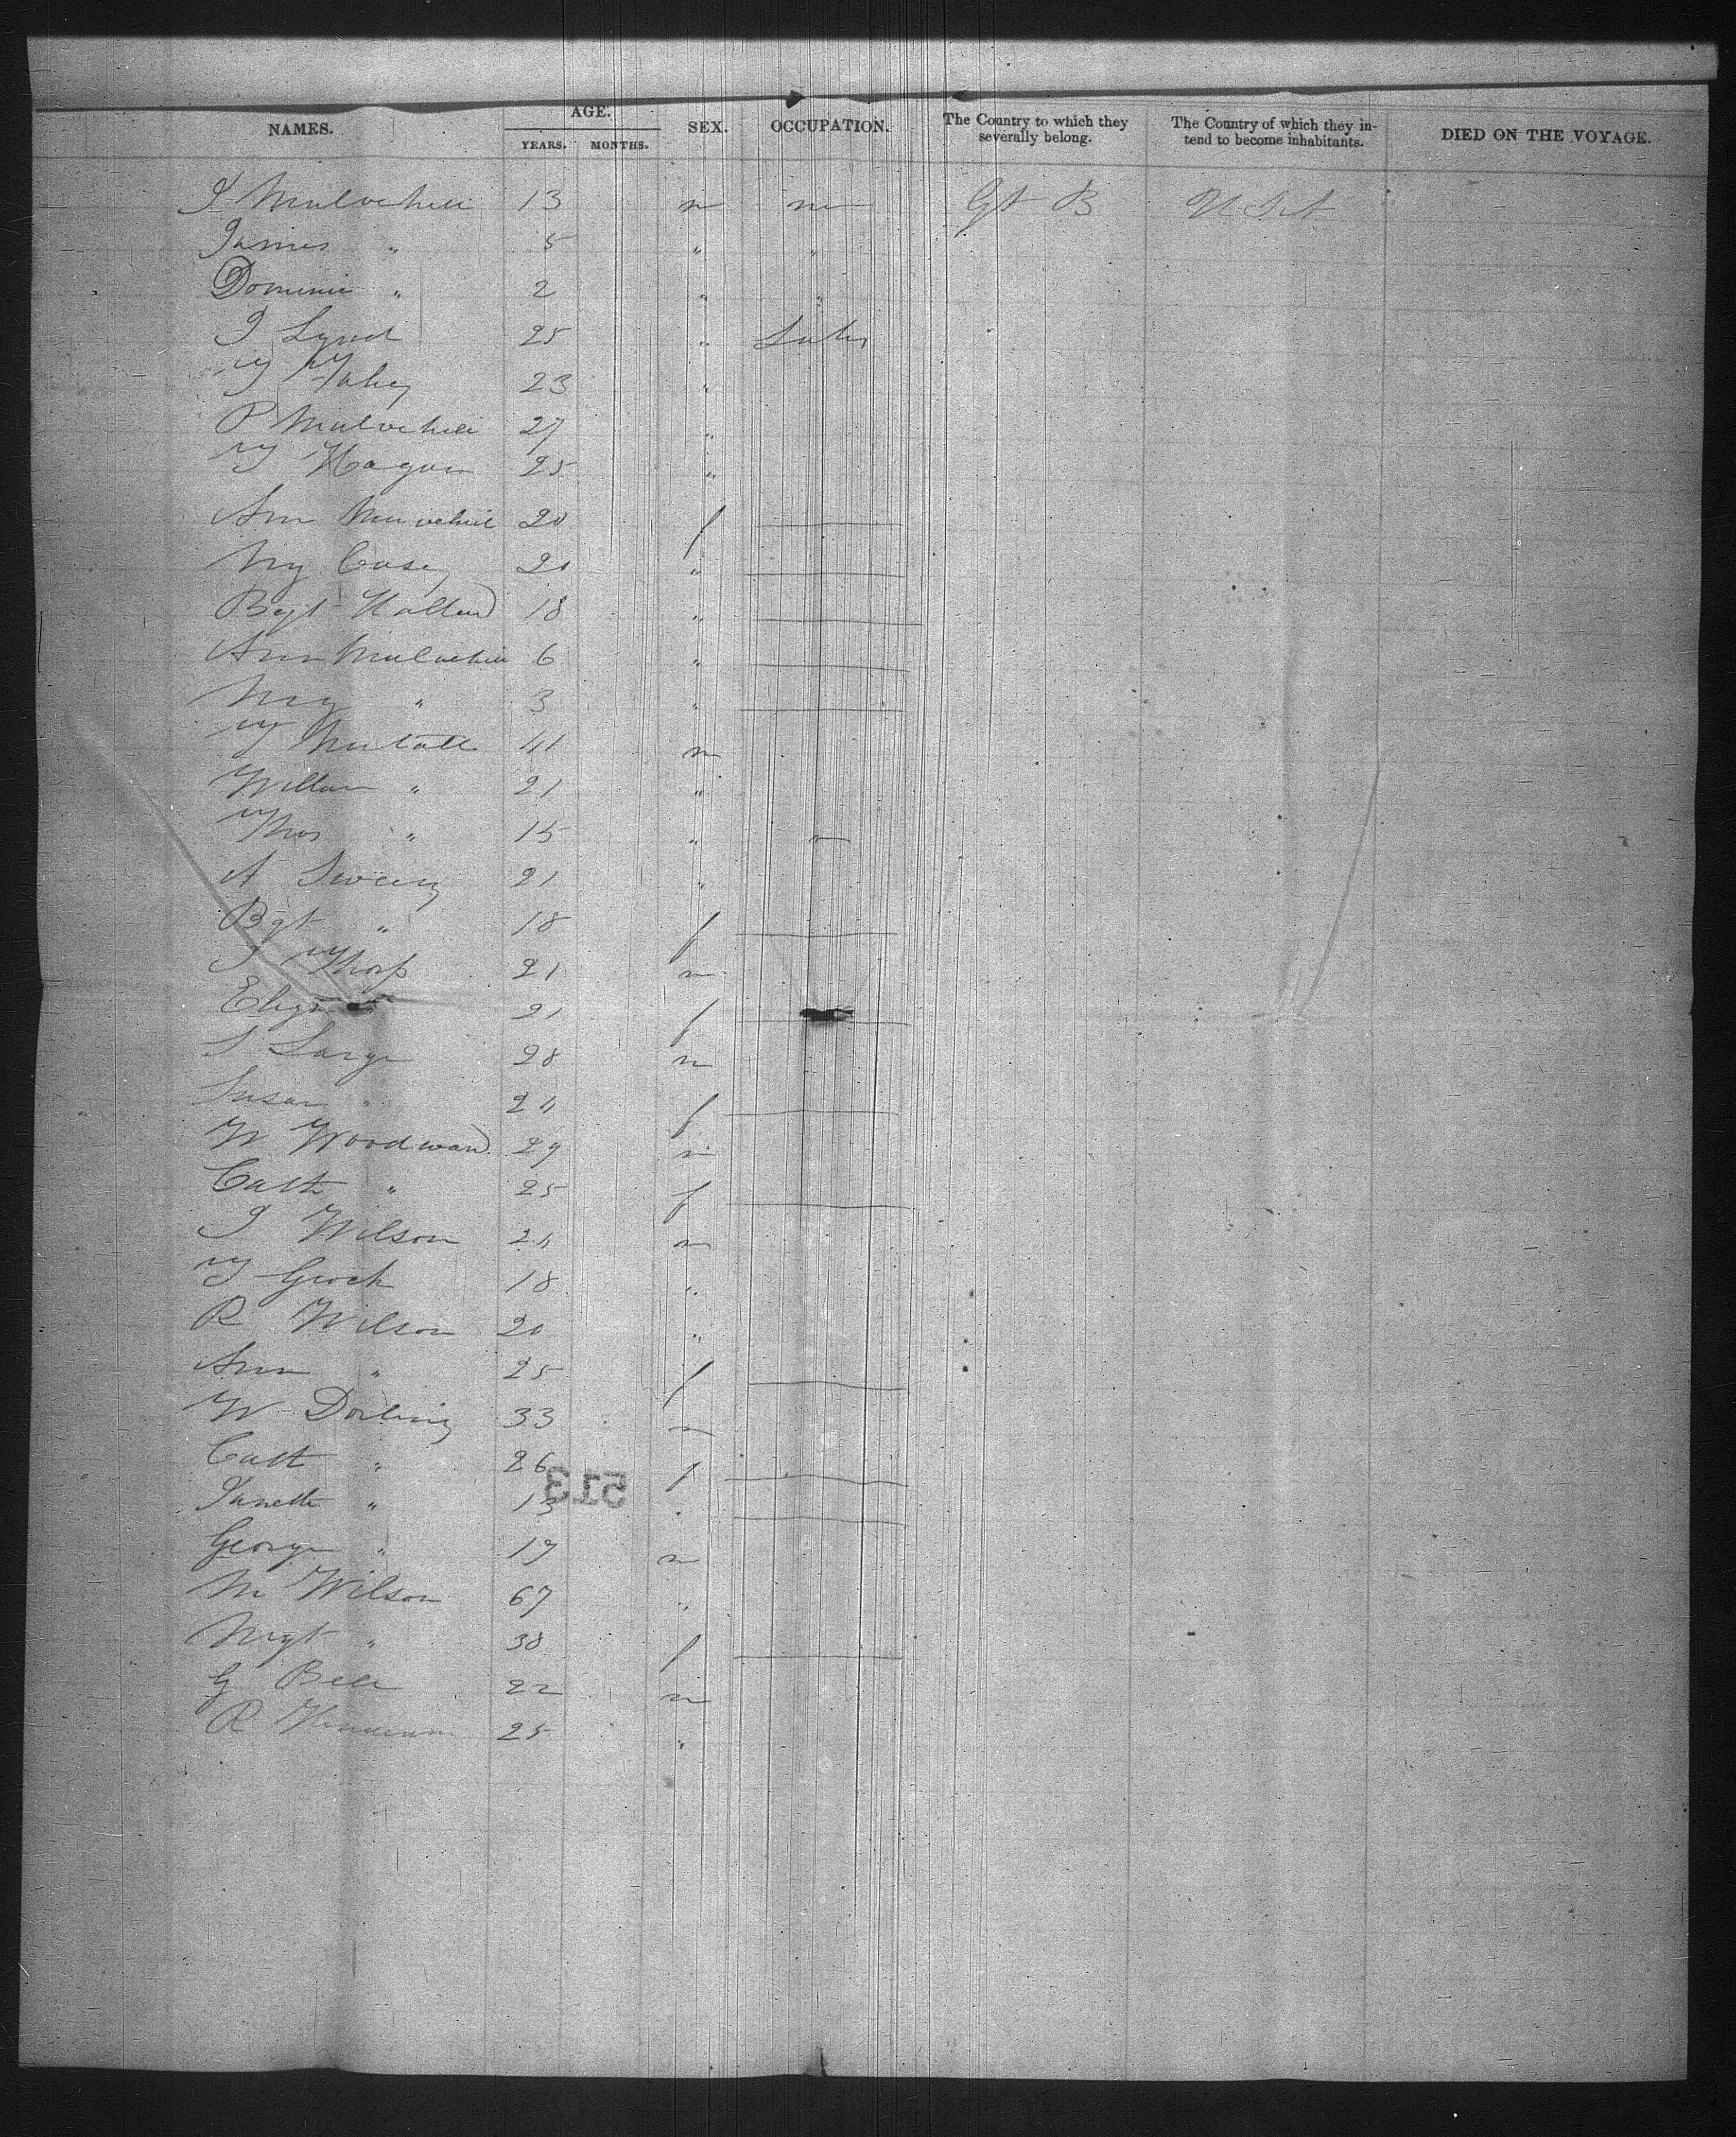 NAMES. AGE. YEARS. MONTHS. SEX. OCCUPATION. The Country to which they severally belong. The Country of which they intend to become inhabitants. DIED ON THE VOYAGE.
J Mulvehill 13 m Gt B U St
James " 5 " "
Dominic " 2 " "
J Lynch 25 " Labr
T Fahey 23 "
P Mulvehill 27 "
T Hagan 25 "
Ann Mulvehill 20 f
My Casey 20 "
Bgt Hallend 18 "
Ann Mulvehill 6 "
My " 3 "
T 41 m
William " 21 "
Thos " 15 " "
A Sweeny 21 "
Bgt " 18 f
J Thorp 21 m
Eliza " 21 f
S Large 28 m
Susan " 24 f
W Woodward 29 m
Cath " 25 f
J Wilson 24 m
T 18 "
R Wilson 20 "
Ann " 25 f
W Dorling 33 m
Cath " 26 f
Janette " 13 "
513
George " 17 m
M Wilson 67 "
Mgt " 38 f
G Bell 22 m
R 25 "